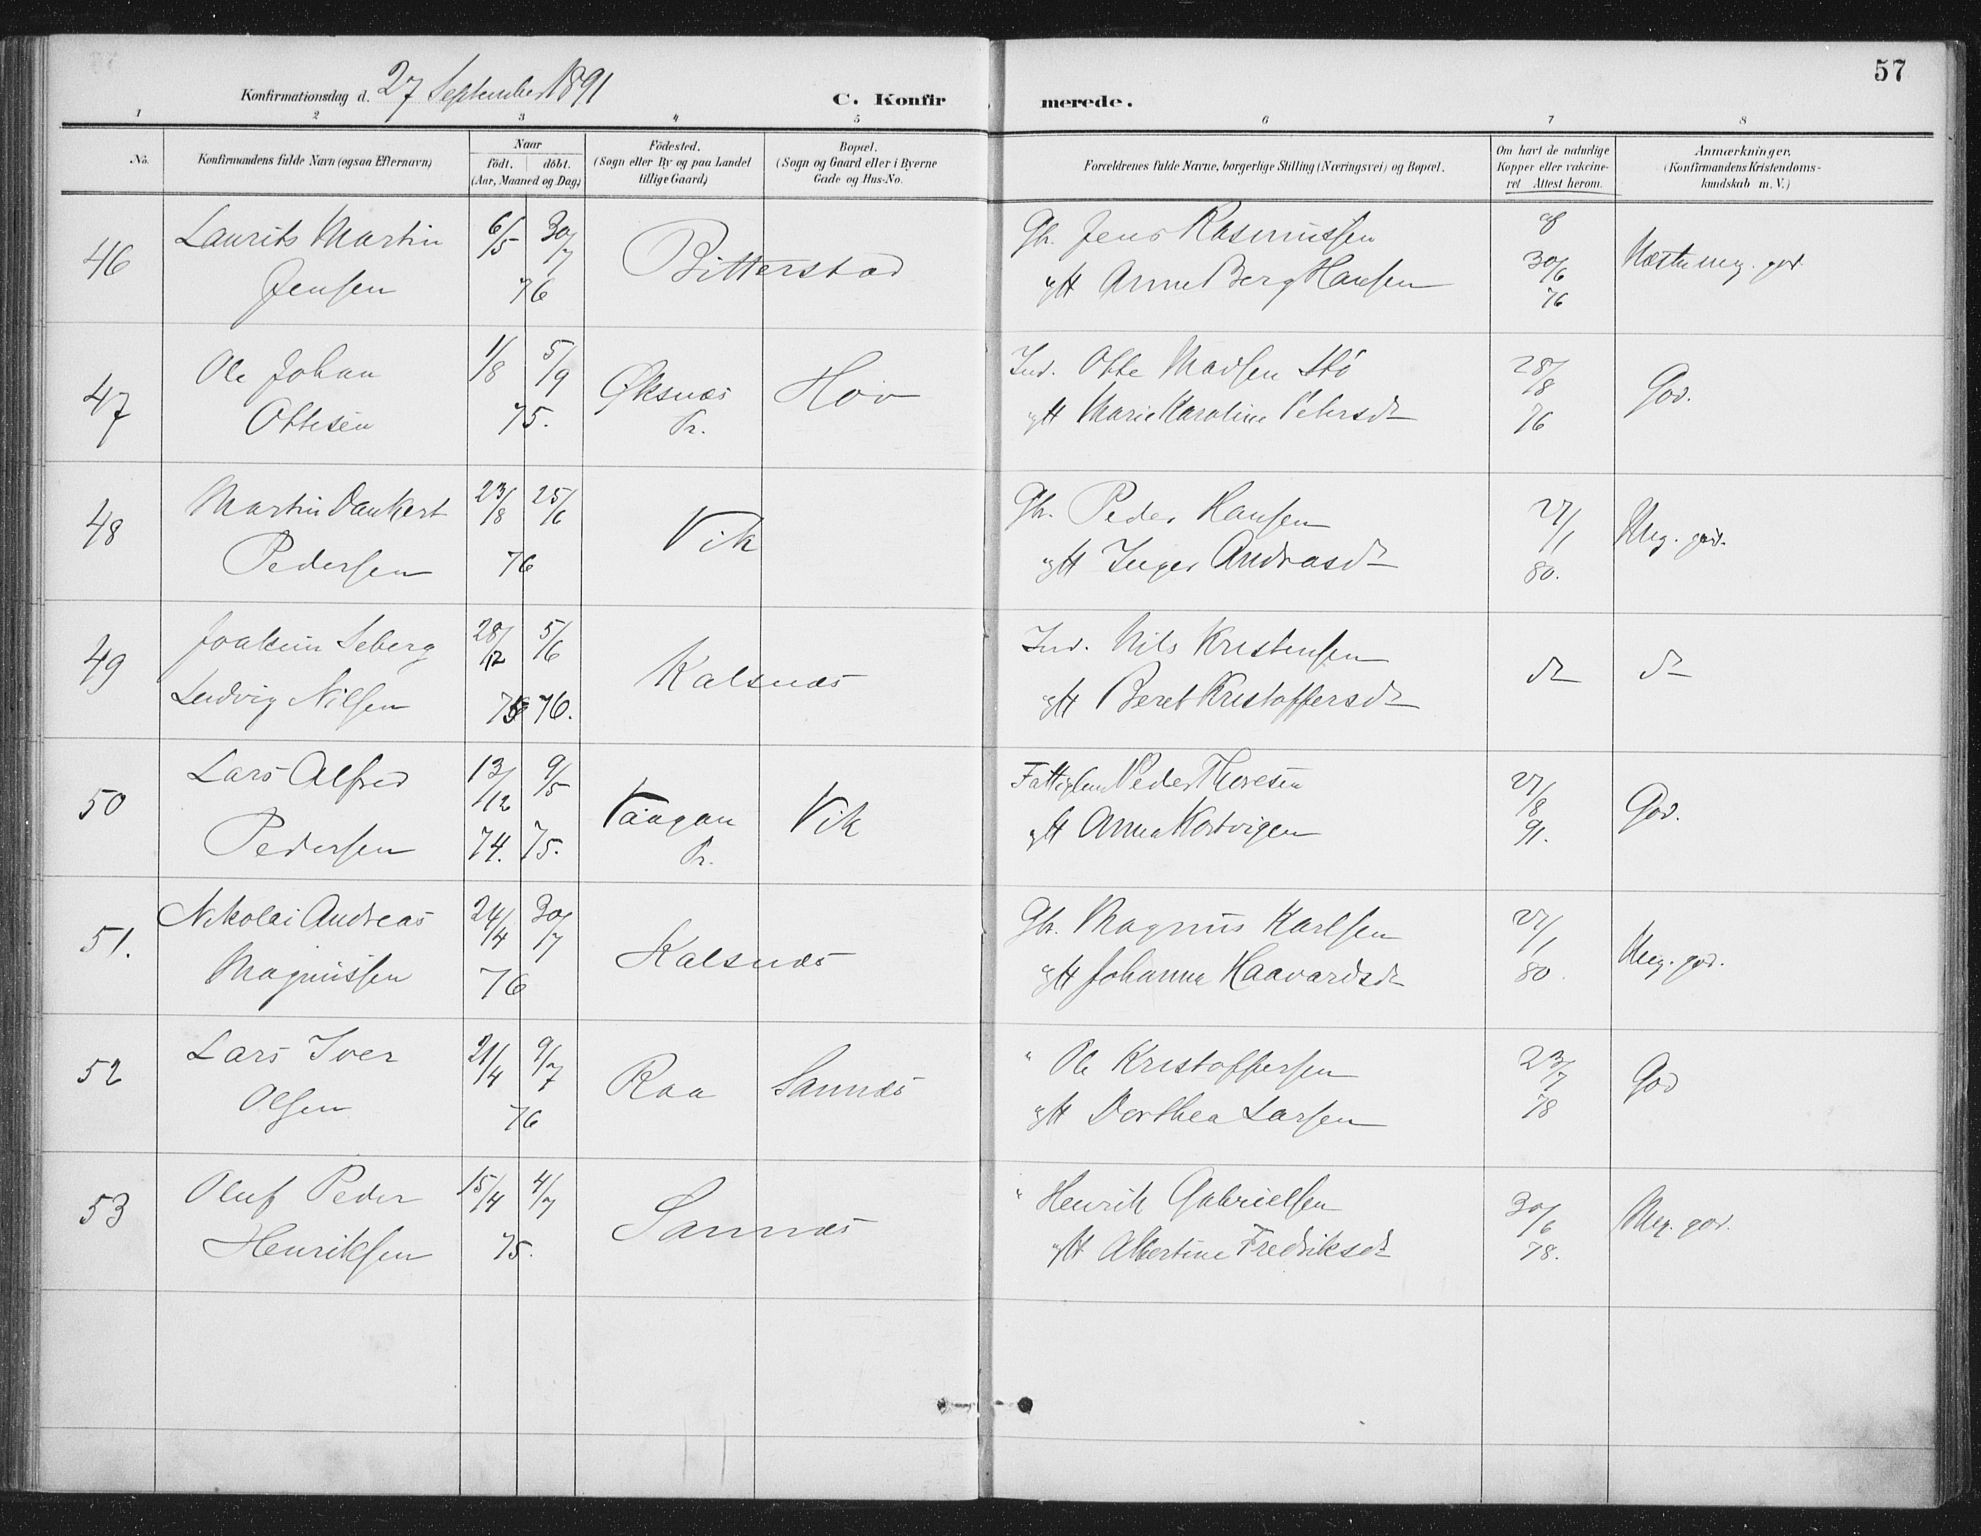 57
Konfirmationsdag d. 27 September 1891
C. Konfirmerede.
1 2 3 4 5 6 7 8
No.
Konfirmandens fulde Navn (ogsaa Efternavn)
Naar
födt. döbt.
(Aar, Maaned og Dag)
Födested.
(Sogn eller By og paa Landet
tillige Gaard)
Bopæl.
(Sogn og Gaard eller i Byerne
Gade og Hus-No.
Forældrenes fulde Navne, borgerlige Stilling (Næringsvei) og Bopæl.
Om havt de naturlige
Kopper eller vakcine-
ret Attest herom.
Anmærkninger.
(Konfirmandens Kristendoms-
kundskab m. V.)
46 Laurits Martin 6/5 30/7 Bitterstad Gbr. Jens Rasmussen af 30/6 76 Næsten meg. god.
Jensen 76 gft Anne Berg Hansen
47 Ole Johan 1/8 5/9 Øksnæs Hov Ind. Otte Madsen Stö 28/8 76 God.
Ottesen 75. Pr. gft Marie Karoline Petersdr
48 Martin Dankert 23/8 25/6 Vik Gbr. Peder Hansen 27/1 80. Meg. god.
Pedersen 76 gft Inger Andreasdr
49 Joakim Seberg 28/12 5/6 Kalsnæs Ind. Nils Kristensen do do
Ludvig Nilsen 75 76. gft Beret Kristoffersdr
50 Lars Alfred 13/12 9/5 Vaagan Vik Peder Thoresen 27/8 91. God.
Pedersen 74. 75. Pr. gft Anna
51. Nikolai Andreas 24/4 30/7 Kalsnæs Gbr. Magnus Karlsen 27/1 80. Meg. god.
Magnussen 76 gft Johanna Haavardsdr
52 Lars Iver 21/4 9/7 Raa Sannæs " Ole Kristoffersen 23/7 78 God
Olsen 76 gft Dorthea Larsen
53 Oluf Peder 15/4 4/7 Sannæs " Henrik Gabrielsen 30/6 78. Meg. god.
Henriksen 75. gft Albertine Fredriksdr